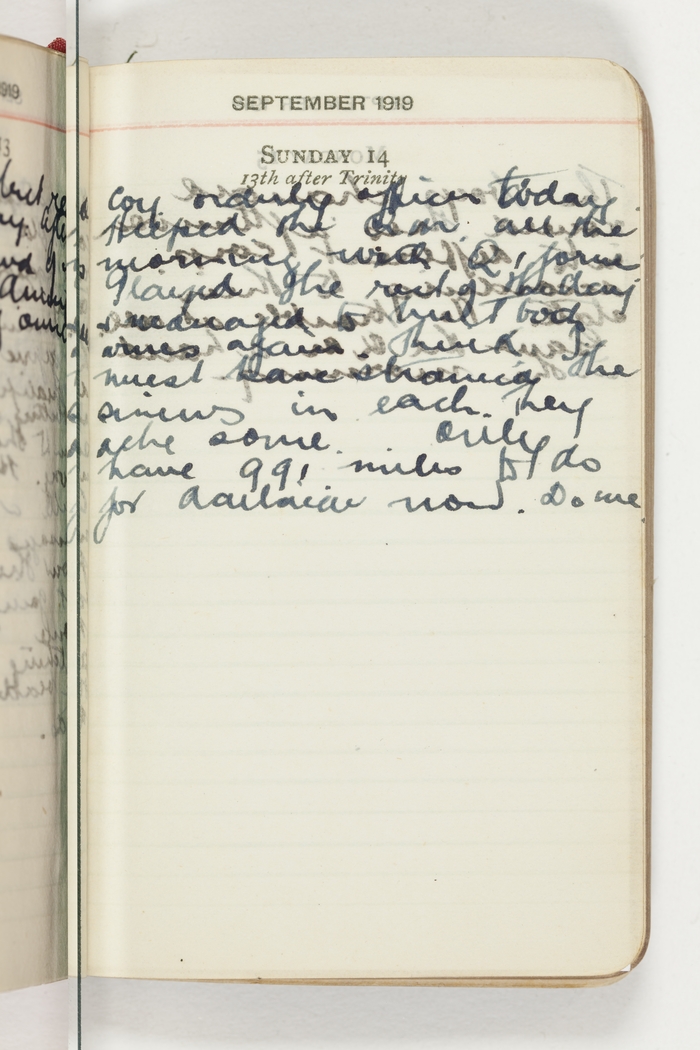 SEPTEMBER 1919
SUNDAY 14
13th after Trinity
Coy orderly officer today.
Helped the all the
morning with Q, forms
Played the rest of the day
& managed to hurt both
arms again. Think I
must have strained the
sinews in each. They
ache some. Only
have 991 miles to do
for Adelaide now. Do me